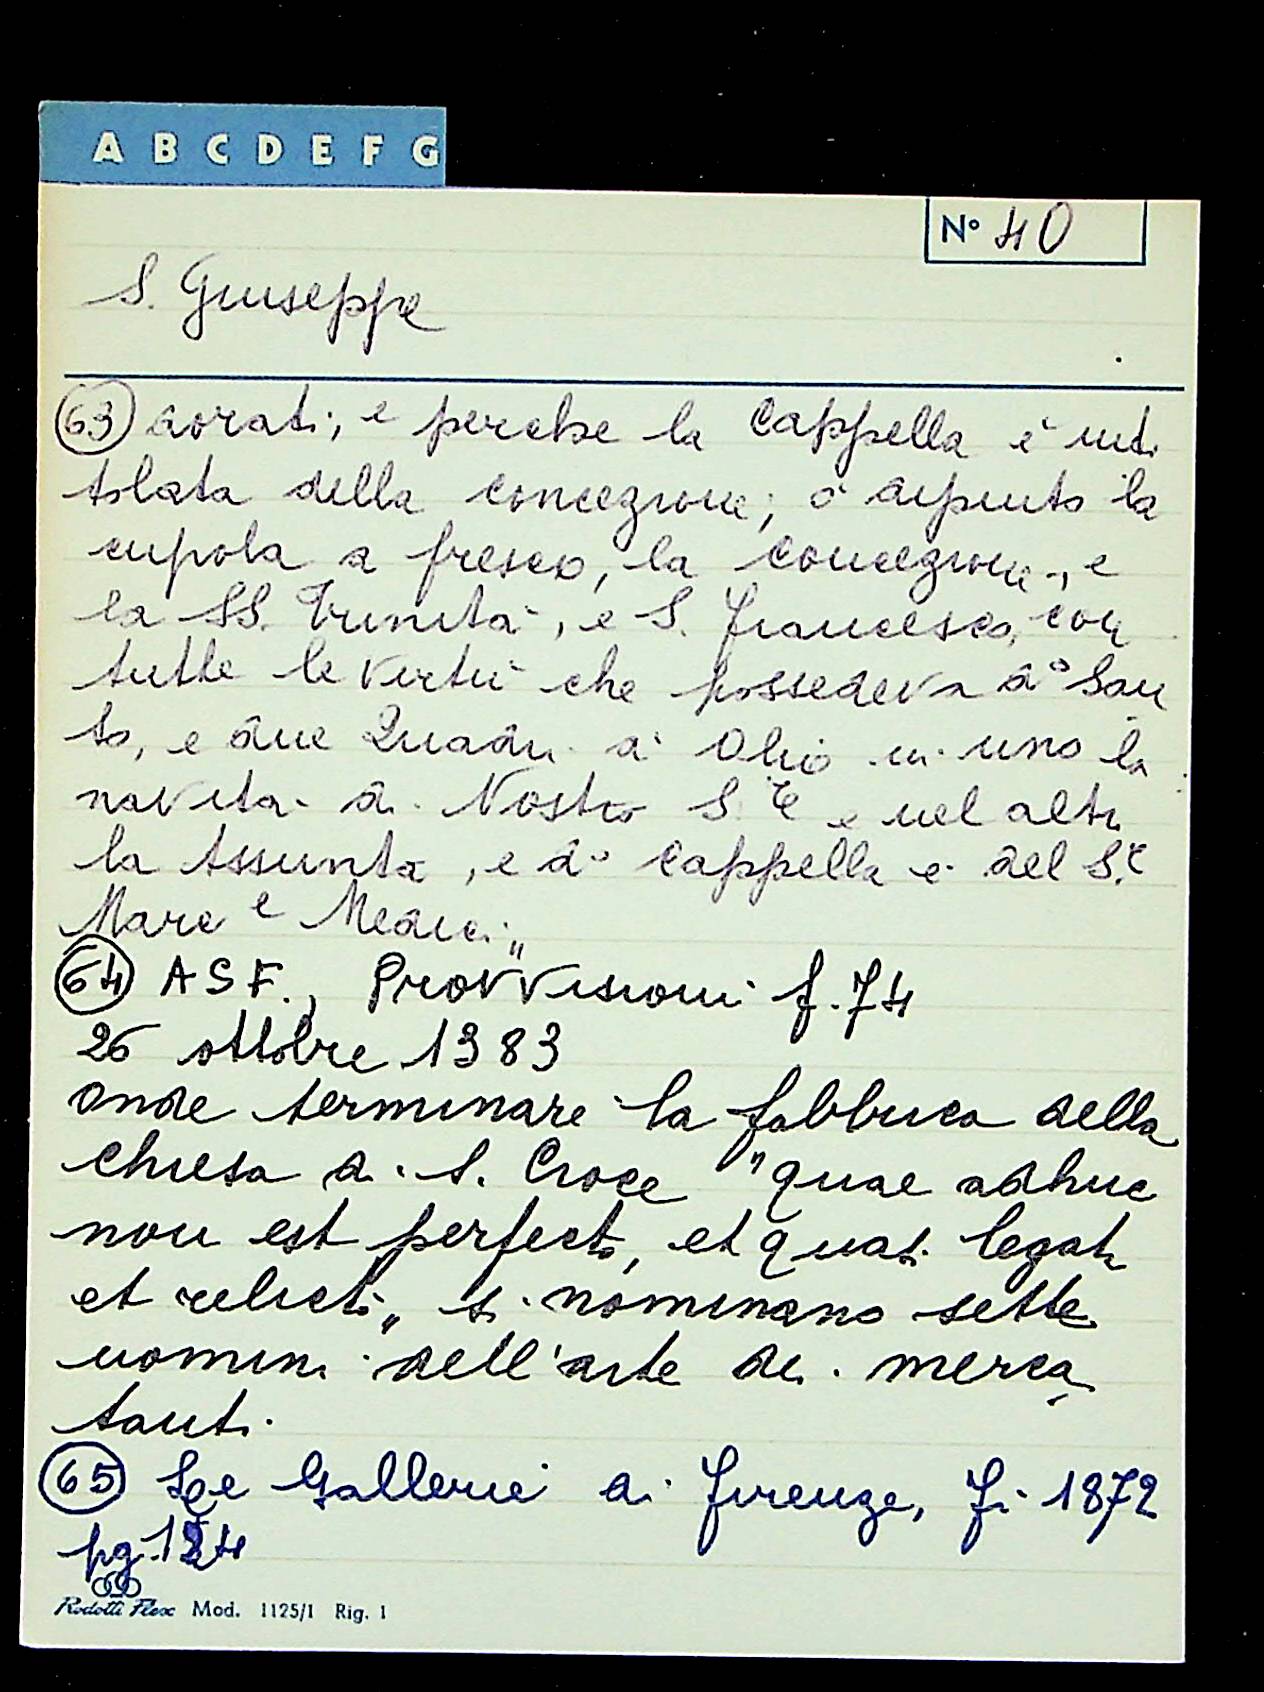 A B C D E F G
N° 40
S. Giuseppe
63 dorati; e perche la Cappella è inti
tolata della concezione; ò dipinto la
cupola a fresco, la concezione, e
la SS. Trinità, e S. Francesco, con
tutte le virtù che possedeva do San
to, e due Quadri à Olio in uno la
navita di Nostro S.re e nel altr
la Assunta, e do Cappella e del S.r
Marc e Medici"
64 A S F., Provvisioni f. 74
26 ottobre 1383
onde terminare la fabbrica della
chiesa di S. Croce "quae adhuc
non est perfecto, et quasi legati
et relicti", si nominano sette
uomini dell'arte dei merca
tanti.
65 Le Gallerie di Firenze, Fi 1872
pg.
Rodotti Flex Mod. 1125/1 Rig. 1